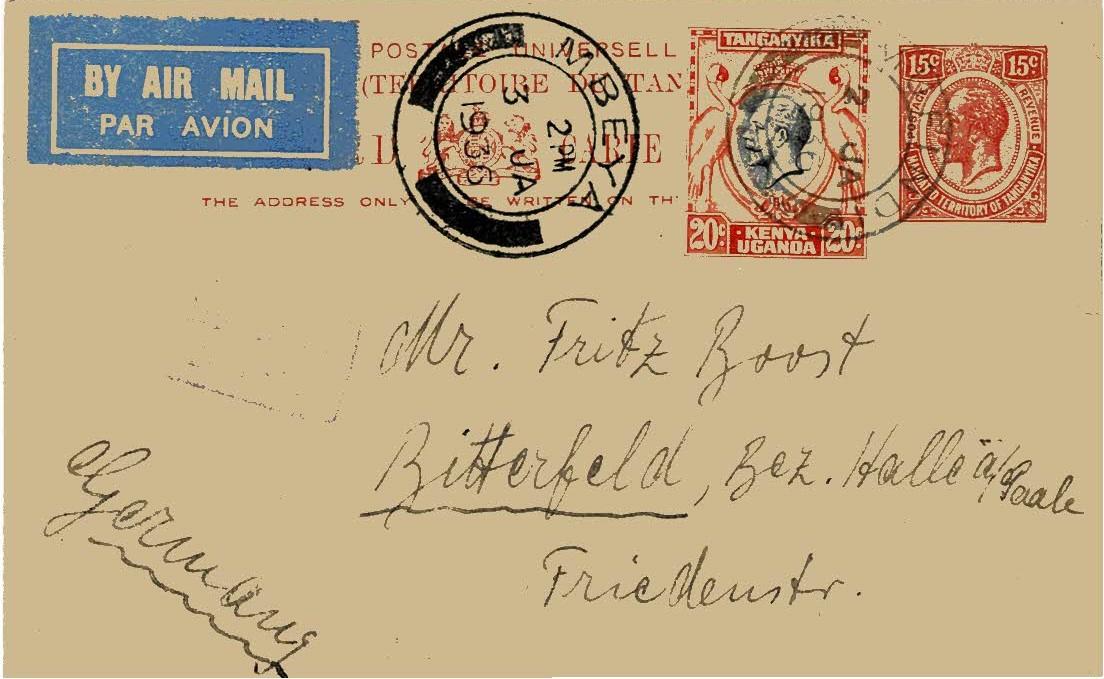 BY AIR MAIL
PAR AVION
UNIVERSELL
(TERRITOIRE DU TAN
THE ADDRESS ONLY BE WRITTEN ON TH
MBEYA
2 PM
3 JA
1936
TANGANYIKA
20c KENYA UGANDA 20c
2 JA
15c 15c
POSTAGE & REVENUE
MANDATED TERRITORY OF TANGANYIKA
Mr. Fritz Boost
Bitterfeld, Bez. Halle a/Saale
Friedenstr.
Germany